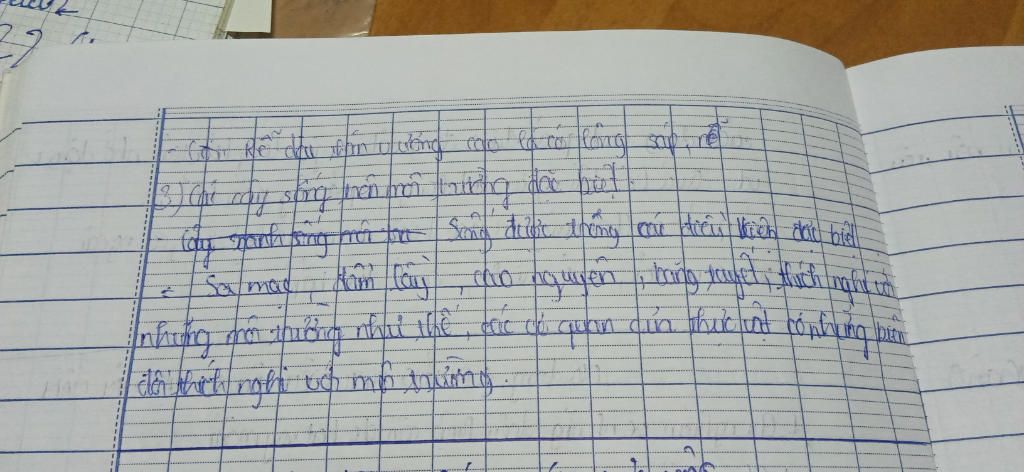 - Cây kế dầu thân vương cao lá có lông sáp, rễ
3) Các cây sống trên môi trường đặc biệt.
Sống được trong các điều kiện đặc biệt
- Sa mạc, đầm lầy, cao nguyên, băng tuyết, thích nghi với
những môi trường như thế, các cơ quan của thực vật có những biến
đổi thích nghi với môi trường.